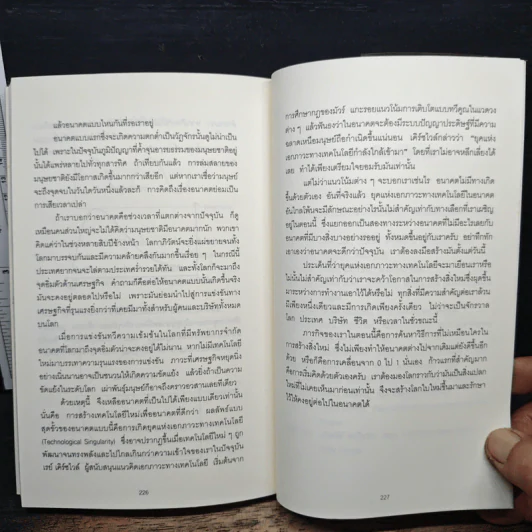 แล้วอนาคตแบบไหนกันที่รอเราอยู่
อนาคตแบบแรกซึ่งจะเกิดความตกต่ำเป็นวัฏจักรนั้นดูไม่น่าเป็น
ไปได้ เพราะในปัจจุบันภูมิปัญญาที่ค้ำจุนอารยธรรมของมนุษยชาติอยู่
นั้นแพร่หลายไปทั่วทุกสารทิศ ถ้าเทียบกันแล้ว การล่มสลายของ
มนุษยชาติยังมีโอกาสเกิดขึ้นมากกว่าเสียอีก แต่หากเราเชื่อว่ามนุษย์
จะถึงจุดจบในวันใดวันหนึ่งแล้วละก็ การคิดถึงเรื่องอนาคตย่อมเป็น
การเสียเวลาเปล่า
ถ้าเราบอกว่าอนาคตคือช่วงเวลาที่แตกต่างจากปัจจุบัน ก็ดู
เหมือนคนส่วนใหญ่จะไม่ได้คิดว่ามนุษยชาติมีอนาคตมากนัก พวกเขา
คิดแค่ว่าในช่วงหลายสิบปีข้างหน้า โลกาภิวัตน์จะยิ่งแผ่ขยายจนทั้ง
โลกมาบรรจบกันและมีความคล้ายคลึงกันมากขึ้นเรื่อย ๆ ในกรณีนี้
ประเทศยากจนจะไล่ตามประเทศร่ำรวยได้ทัน และทั้งโลกก็จะมาถึง
จุดอิ่มตัวด้านเศรษฐกิจ คำถามก็คือต่อให้อนาคตแบบนั้นเกิดขึ้นจริง
มันจะคงอยู่ตลอดไปหรือไม่ เพราะมันย่อมนำไปสู่การแข่งขันทาง
เศรษฐกิจที่รุนแรงยิ่งกว่าที่เคยมีมาทั้งสำหรับผู้คนและบริษัททั้งหมด
บนโลก
เมื่อการแข่งขันทวีความเข้มข้นในโลกที่มีทรัพยากรจำกัด
อนาคตที่โลกมาถึงจุดอิ่มตัวคงจะอยู่ได้ไม่นาน หากไม่มีเทคโนโลยี
ใหม่มาบรรเทาความรุนแรงของการแข่งขัน ภาวะที่เศรษฐกิจหยุดนิ่ง
อย่างเนิ่นนานอาจเป็นชนวนให้เกิดความขัดแย้ง แล้วยิ่งถ้าเป็นความ
ขัดแย้งในระดับโลก เผ่าพันธุ์มนุษย์ก็อาจถึงคราวอวสานเลยทีเดียว
ด้วยเหตุนี้ จึงเหลืออนาคตที่เป็นไปได้เพียงแบบเดียวเท่านั้น
นั่นคือ การสร้างเทคโนโลยีใหม่เพื่ออนาคตที่ดีกว่า ผลลัพธ์แบบ
สุดขั้วของอนาคตแบบนี้คือการเกิดยุคแห่งเอกภาวะทางเทคโนโลยี
(Technological Singularity) ซึ่งอาจปรากฏขึ้นเมื่อเทคโนโลยีใหม่ ๆ ถูก
พัฒนาจนทรงพลังและไปไกลเกินกว่าความเข้าใจของเราในปัจจุบัน
เรย์ เคิร์ซไวล์ ผู้สนับสนุนแนวคิดเอกภาวะทางเทคโนโลยี เริ่มต้นจาก
226
การศึกษากฎของมัวร์ แกะรอยแนวโน้มการเติบโตแบบทวีคูณในแวดวง
ต่าง ๆ แล้วฟันธงว่าในอนาคตจะต้องมีระบบปัญญาประดิษฐ์ที่มีความ
ฉลาดเหนือมนุษย์ถือกำเนิดขึ้นแน่นอน เคิร์ซไวล์กล่าวว่า "ยุคแห่ง
เอกภาวะทางเทคโนโลยีกำลังใกล้เข้ามา" โดยที่เราไม่อาจหลีกเลี่ยงได้
เลย ทำได้เพียงเตรียมใจยอมรับมันเท่านั้น
แต่ไม่ว่าแนวโน้มต่าง ๆ จะบอกเราเช่นไร อนาคตไม่มีทางเกิด
ขึ้นด้วยตัวเอง อันที่จริงแล้ว ยุคแห่งเอกภาวะทางเทคโนโลยีในอนาคต
อันไกลโพ้นจะมีลักษณะอย่างไรนั้นไม่สำคัญเท่ากับทางเลือกที่เราเผชิญ
อยู่ในตอนนี้ ซึ่งแยกออกเป็นสองทางระหว่างอนาคตที่ไม่มีอะไรเลยกับ
อนาคตที่มีบางสิ่งบางอย่างรออยู่ ทั้งหมดขึ้นอยู่กับเราครับ อย่าทึกทัก
เอาเองว่าอนาคตจะดีกว่าปัจจุบัน เราต้องลงมือสร้างมันตั้งแต่วันนี้
ประเด็นที่ว่ายุคแห่งเอกภาวะทางเทคโนโลยีจะมาเยือนเราหรือ
ไม่นั้นไม่สำคัญเท่ากับว่าเราจะคว้าโอกาสในการสร้างสิ่งใหม่ซึ่งผุดขึ้น
มาระหว่างการทำงานเอาไว้ได้หรือไม่ ทุกสิ่งที่มีความสำคัญต่อเราล้วน
มีเพียงหนึ่งเดียวและมีการเกิดเพียงครั้งเดียว ไม่ว่าจะเป็นจักรวาล
โลก ประเทศ บริษัท ชีวิต หรือเวลาในชั่วขณะนี้
ภารกิจของเราในตอนนี้คือการค้นหาวิธีการที่ไม่เหมือนใครใน
การสร้างสิ่งใหม่ ซึ่งไม่เพียงทำให้อนาคตต่างไปจากเดิมแต่ยังดีขึ้นอีก
ด้วย หรือก็คือการเคลื่อนจาก 0 ไป 1 นั่นเอง ก้าวแรกที่สำคัญมาก
คือการเริ่มคิดด้วยตัวเองครับ เราต้องมองโลกราวกับว่ามันเป็นสิ่งแปลก
ใหม่ที่ไม่เคยเห็นมาก่อนเท่านั้น จึงจะสร้างโลกใบใหม่ขึ้นมาและรักษา
ไว้ให้คงอยู่ต่อไปในอนาคตได้
227